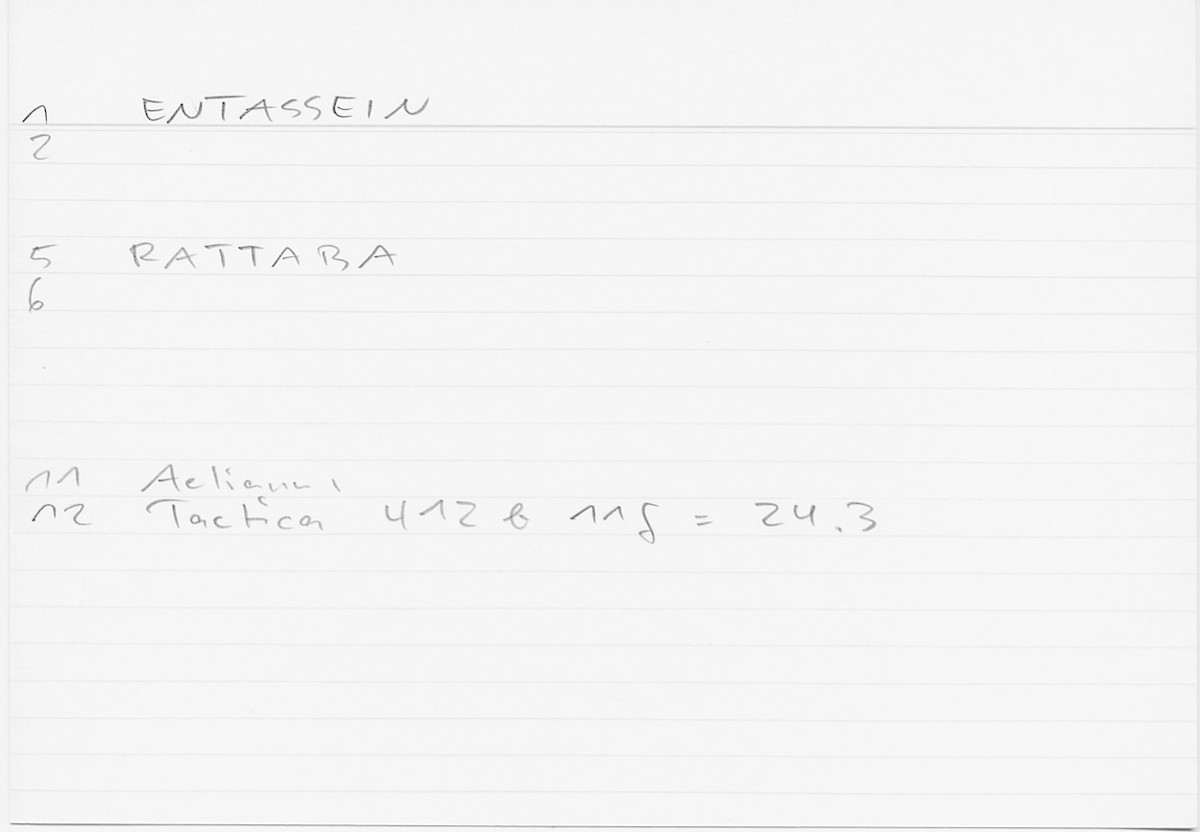 1 ENTASSEIN
2
5 RATTABA
6
11 Aelianus
12 Tactica 412 b 11f = 24.3